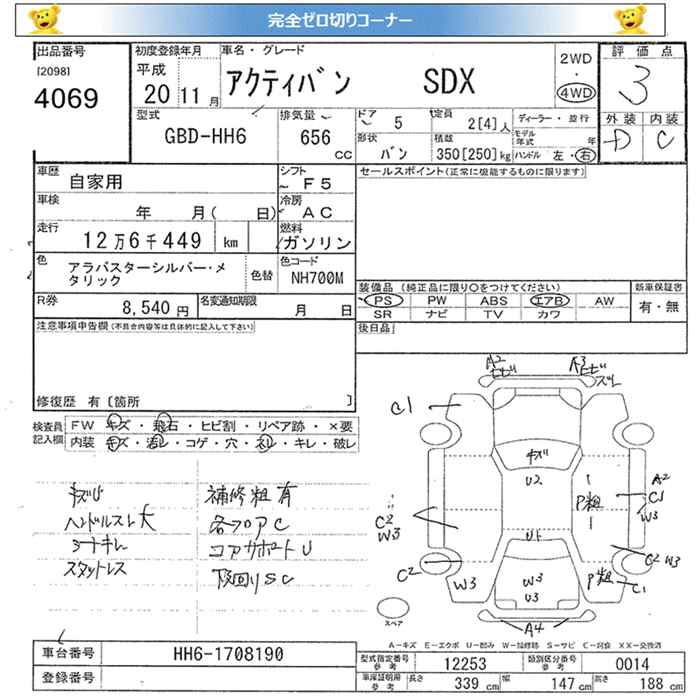 完全ゼロ切りコーナー
出品番号
[2098]
4069
初度登録年月
平成
20 11 月
車名・グレード
アクティバン SDX
2WD
・
4WD
評価点
3
外装 内装
D C
型式
GBD-HH6
排気量
656
cc
ドア
5
定員
2[4] 人
ディーラー・並行
モデル年式 年
形状
バン
積載
350[250] kg
ハンドル 左・右
車歴
自家用
シフト
F5
セールスポイント(正常に機能するものに限ります)
車検
年 月( 日)
冷房
AC
走行
12万6千449 km
燃料
ガソリン
色
アラバスターシルバー・メタリック
色替
色コード
NH700M
装備品(純正品に限り○をつけてください)
PS PW ABS エアB AW
SR ナビ TV カワ
新車保証書
有・無
R券
8,540 円
名変通知期限
月 日
後日品
注意事項申告欄(不具合内容等は具体的に記入して下さい)
修復歴 有〔箇所 〕
検査員記入欄
FW キズ・飛石・ヒビ割・リペア跡・×要
内装 キズ・汚レ・コゲ・穴・スレ・キレ・破レ
キズU
ハンドルスレ大
シートキレ
スタットレス
補修粗有
各フロアC
コアサポートU
下回りSC
A2
ヒビ
A3
ヒビ
ズレ
C1
キズ
U2
P粗
A2
C1
W3
C2
W3
U1
C2 W3
C2
W3
W3
U3
P粗
C1
A4
スペア
A-キズ E-エクボ U-凹み W-補修跡 S-サビ C-腐食 XX-交換済
車台番号
HH6-1708190
登録番号
型式指定番号
参考
12253
類別区分番号
参考
0014
車庫証明用
参考
長さ
339 cm
幅
147 cm
高さ
188 cm